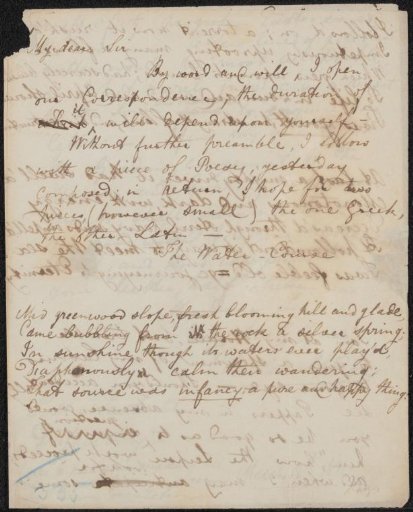 My dear Sir
By word and will I open
our Correspondence the duration of
it will depend upon yourself —
Without further preamble, I inclose
with a piece of Poesy, yesterday
composed; in return, I hope for two
pieces (however small) the one Greek,
the other Latin —
The Water-Course
Mid greenwood slope, fresh blooming hill and glade
Came bubbling from the rock a silver spring;
In sunshine though its waters ever play'd
Diaphanously calm their wandering;
That source was infancy: a pure and happy thing.